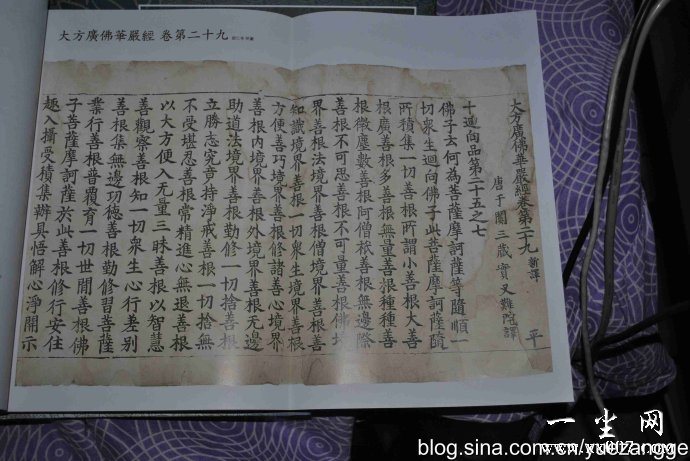 大方廣佛華嚴經 卷第二十九
大方廣佛華嚴經卷第二十九 新譯 平
唐于闐三藏實叉難陀譯
十迴向品第二十五之七
佛子云何為菩薩摩訶薩等隨順一
切衆生迴向佛子此菩薩摩訶薩隨
所積集一切善根所謂小善根大善
根廣善根多善根無量善根種種善
根微塵數善根阿僧祇善根無邊際
善根不可思善根不可量善根佛境
界善根法境界善根僧境界善根善
知識境界善根一切衆生境界善根
方便善巧境界善根修諸善心境界
善根内境界善根外境界善根无邊
助道法境界善根勤修一切捨善根
立勝志究竟持淨戒善根一切捨無
不受堪忍善根常精進心無退善根
以大方便入无量三昧善根以智慧
善觀察善根知一切衆生心行差别
善根集無邊功德善根勤修習菩薩
業行善根普覆育一切世間善根佛
子菩薩摩訶薩於此善根修行安住
趣入攝受積集辦具悟解心淨開示
一尘网
blog.sina.com.cn/yuezangge